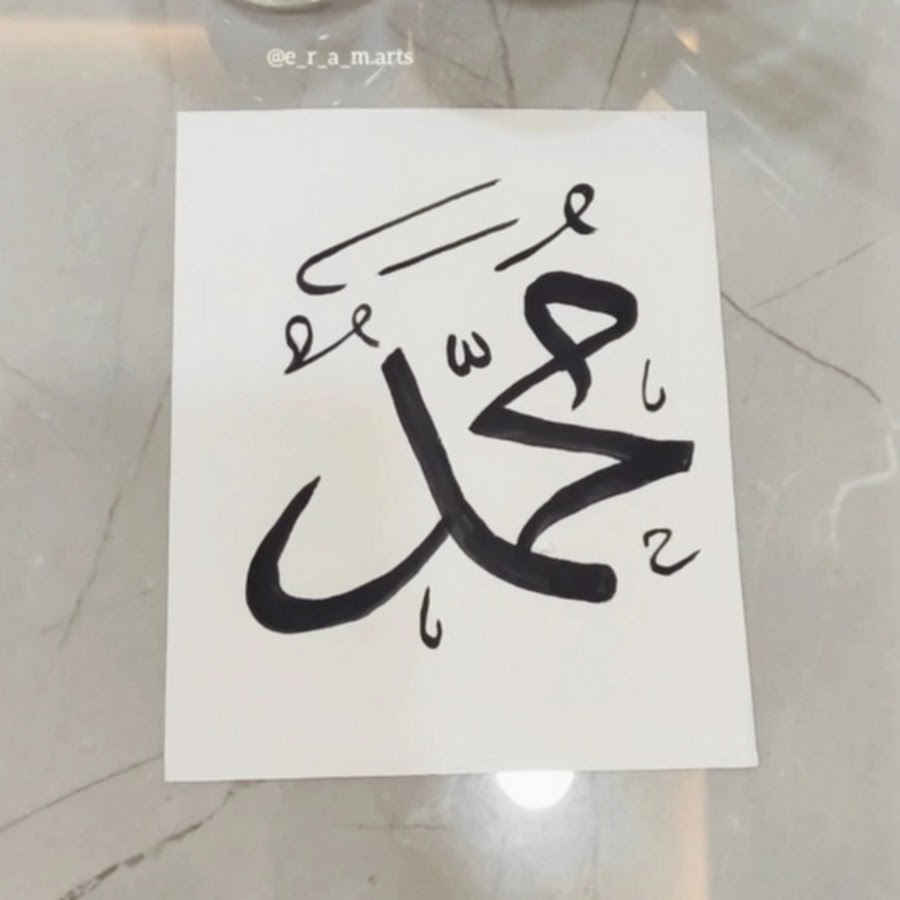 @e_r_a_m.arts
مُحَمَّدٌ